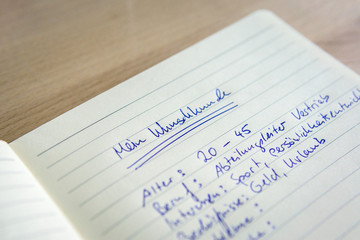 Mein Wunschkunde
Alter: 20 - 45
Beruf: Abteilungsleiter Vertrieb
Interessen: Sport, Persönlichkeitsentwickl
Bedürfnisse: Geld, Urlaub